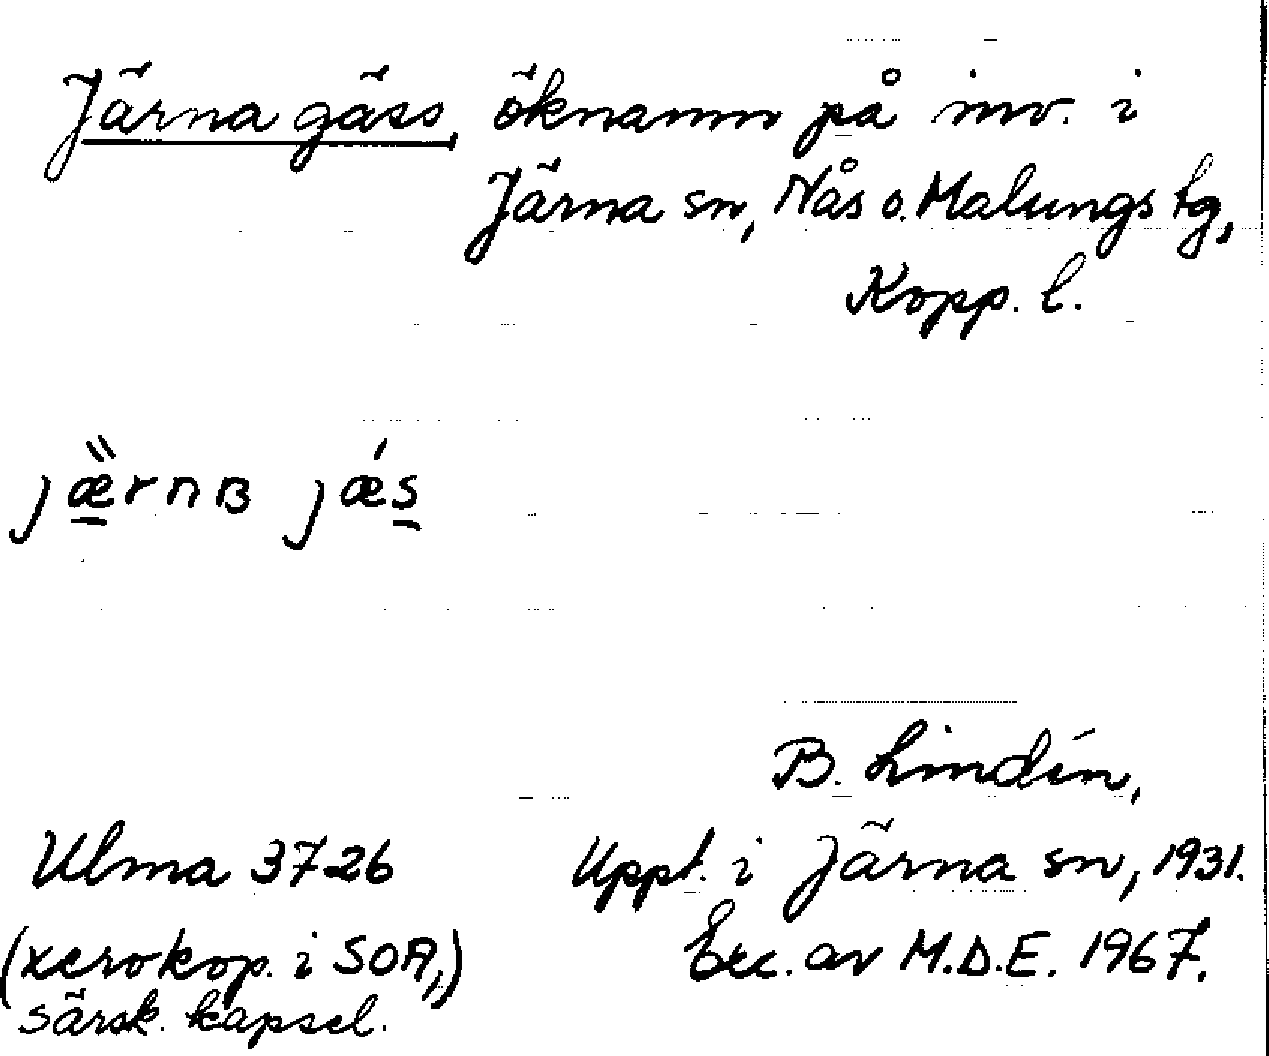 Järna gäss, öknamn på inv. i
Järna sn, Nås o. Malungs tg,
Kopp. l.
jæ̀̀rnʙ jǽs
B. Lindén,
Ulma 3726
Uppt. i Järna sn, 1931.
(xerokop. i SOA,)
Exc. av M.D.E. 1967.
särsk. kapsel.